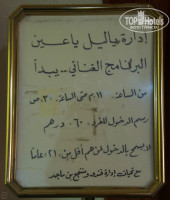 TOP HOTELS
إدارة ياليل ياعين
البرنامج الفني .. يبدأ
من الساعة ١١م حتى الساعة ٣٠ص
رسم الدخول للفرد ٦٠ درهم
لا يسمح بالدخول لمن هم أقل من ٢١ عاماً
مع تحيات إدارة فندق ومنتجع بن ماجد